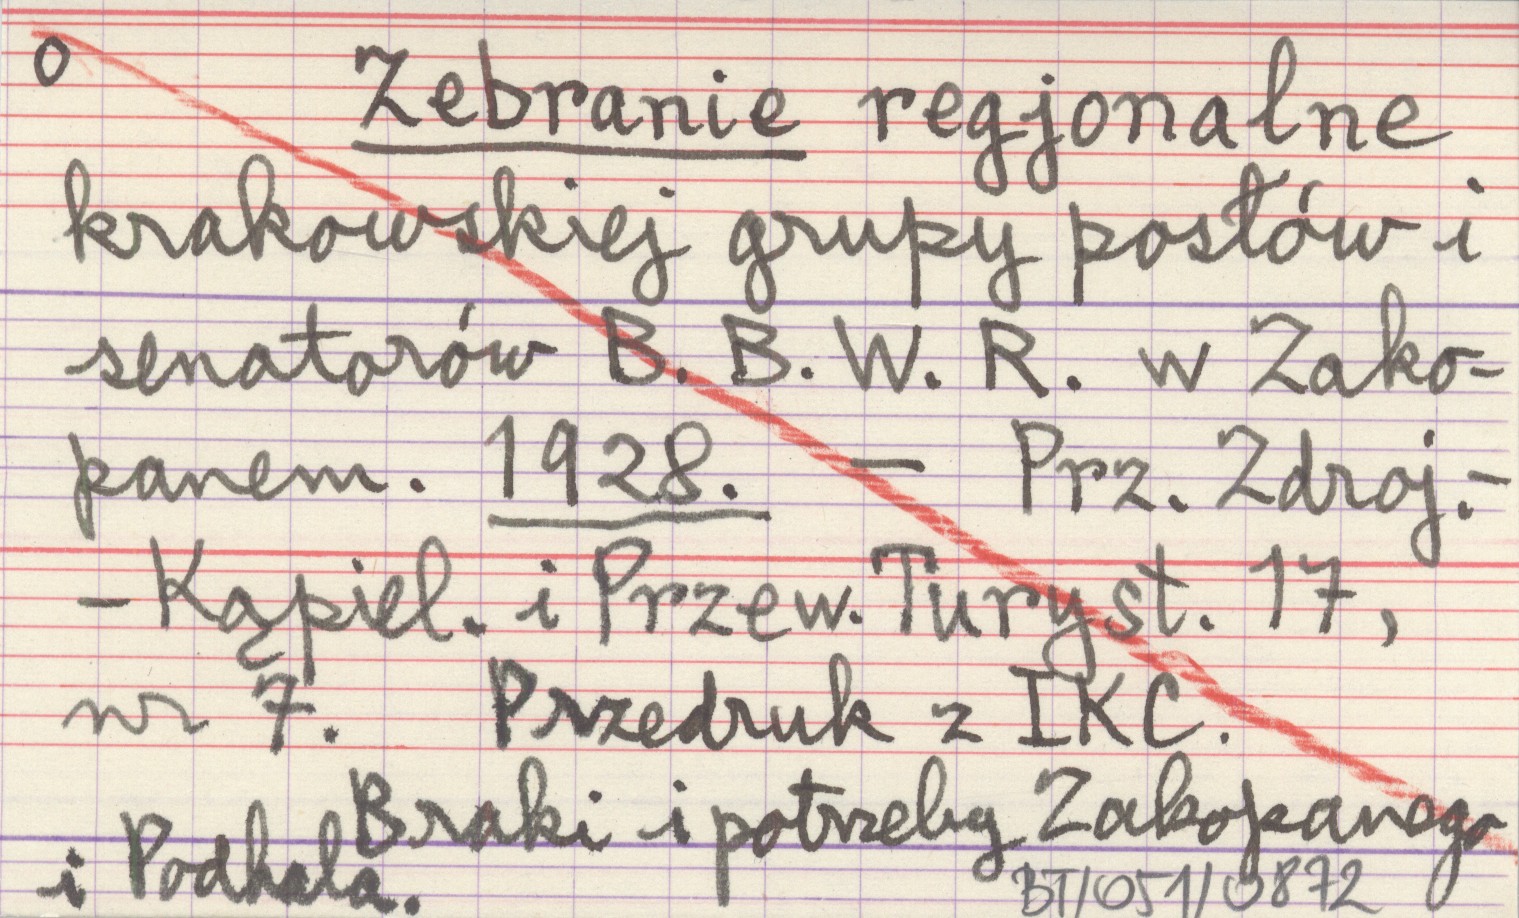 o Zebranie regjonalne
krakowskiej grupy posłów i
senatorów B. B. W. R. w Zako-
panem. 1928. — Prz. Zdroj.-
-Kąpiel. i Przew. Turyst. 17,
nr 7. Przedruk z IKC.
Braki i potrzeby Zakopanego
i Podhala.
BT/051/0872